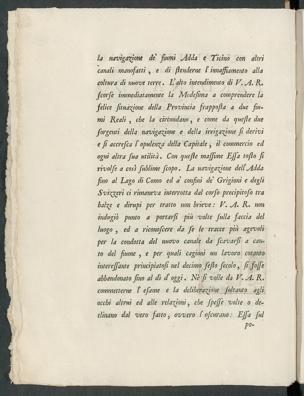 la navigazione de' fiumi Adda e Ticino con altri
canali manofatti, e di stenderne l'innaffiamento alla
coltura di nuove terre. L'alto intendimento di V. A. R.
scorse immediatamente la Medesima a comprendere la
felice situazione della Provincia frapposta a due fiu-
mi Reali, che la circondano, e come da queste due
sorgenti della navigazione e della irrigazione si derivi
e si accresca l'opulenza della Capitale, il commercio ed
ogni altra sua utilità. Con queste massime Essa tosto si
rivolse a così sublime scopo. La navigazione dell'Adda
fino al Lago di Como ed a' confini de' Grigioni e degli
Svizzeri ci rimaneva interrotta dal corso precipitoso tra
balze e dirupi per tratto non brieve: V. A. R. non
indugiò punto a portarsi più volte sulla faccia del
luogo, ed a riconoscere da se le tracce più agevoli
per la condotta del nuovo canale da scavarsi a can-
to del fiume, e per quali cagioni un lavoro cotanto
interessante principiatosi nel decimo sesto secolo, si fosse
abbandonato fino al dì d'oggi. Nè si volle da V. A. R.
commetterne l'esame e la deliberazione soltanto agli
occhi altrui ed alle relazioni, che spesse volte o de-
clinano dal vero fatto, ovvero l'oscurano: Essa sul
po-